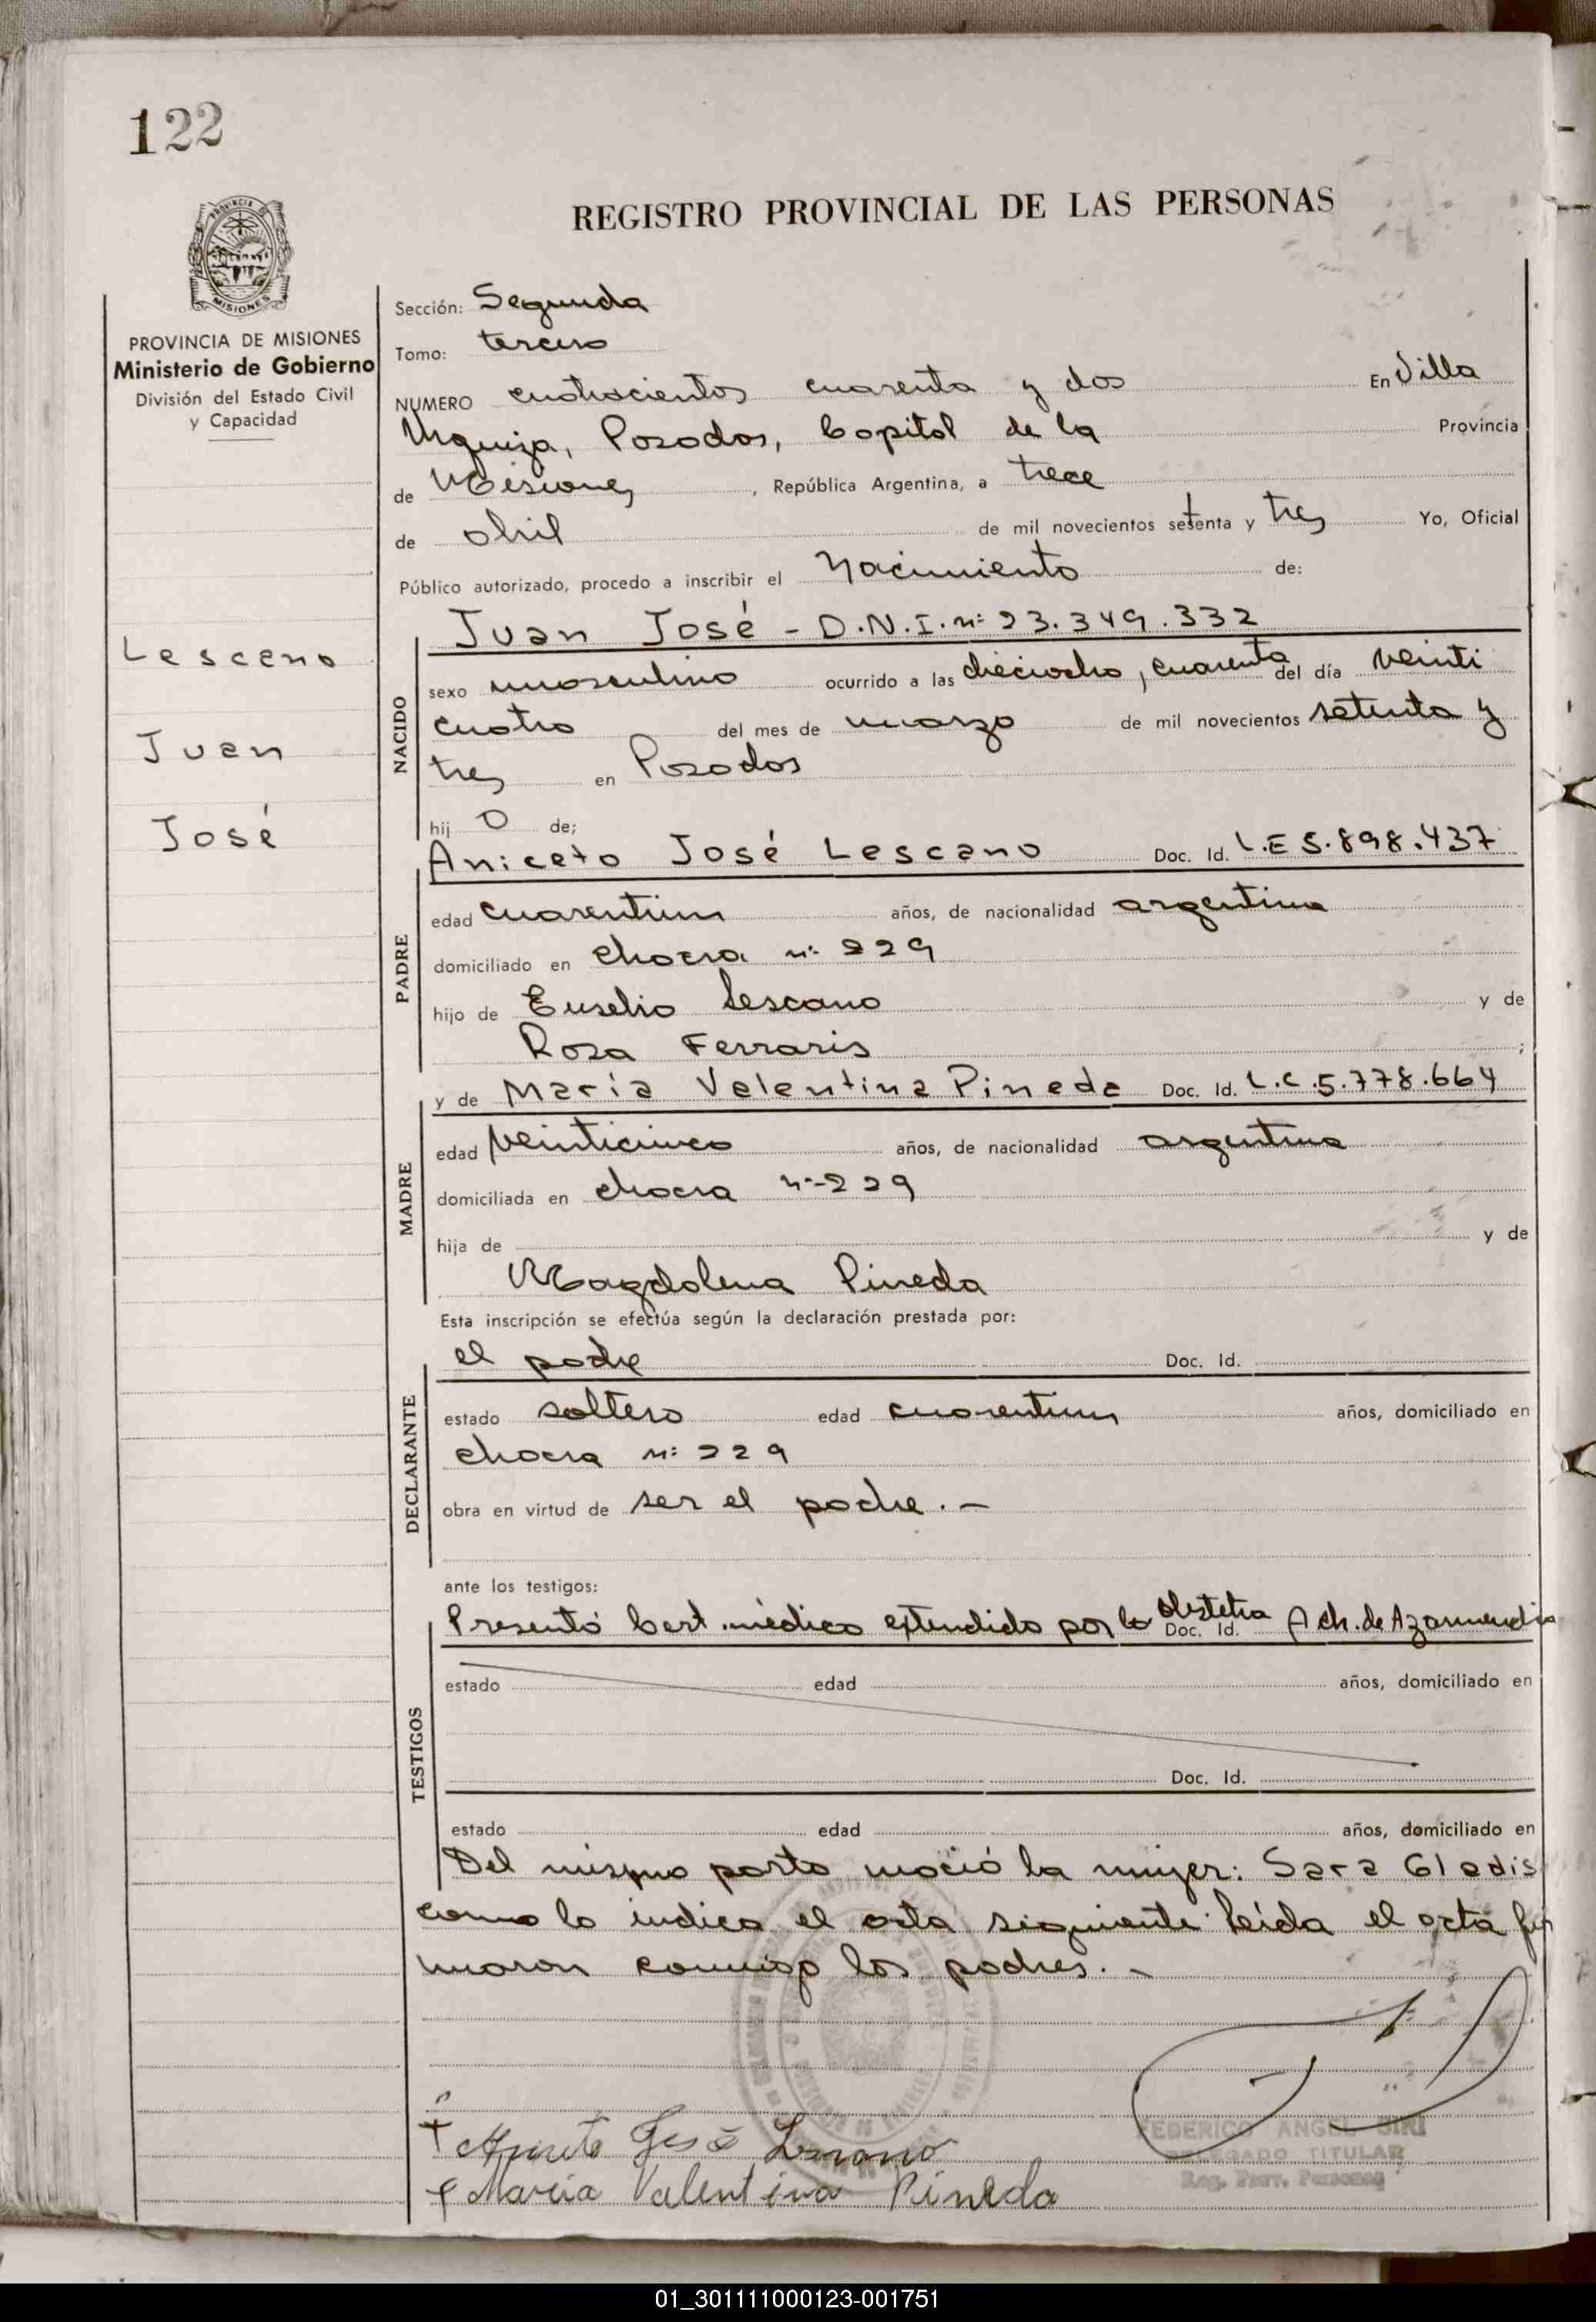 122
REGISTRO PROVINCIAL DE LAS PERSONAS
PROVINCIA DE MISIONES
Ministerio de Gobierno
División del Estado Civil
y Capacidad
Lescano
Juan
José
Sección: Segunda
Tomo: tercero
NUMERO cuatrocientos cuarenta y dos En Villa
Urquiza, Posadas, Capital de la Provincia
de Misiones, República Argentina, a trece
de abril de mil novecientos setenta y tres Yo, Oficial
Público autorizado, procedo a inscribir el Nacimiento de:
Juan José - D.N.I. nº 23.349.332
NACIDO
sexo masculino ocurrido a las dieciocho, cuarenta del día veinti
cuatro del mes de marzo de mil novecientos setenta y
tres en Posadas
hij o de;
Aniceto José Lescano Doc. Id. L.E 5.898.437
PADRE
edad cuarentiun años, de nacionalidad argentina
domiciliado en chacra nº 229
hijo de Eusebio Lescano y de
Rosa Ferraris ;
y de María Valentina Pineda Doc. Id. L.C. 5.778.664
MADRE
edad veinticinco años, de nacionalidad argentina
domiciliada en chacra nº 229
hija de y de
Magdalena Pineda
Esta inscripción se efectúa según la declaración prestada por:
el padre Doc. Id.
DECLARANTE
estado soltero edad cuarentiun años, domiciliado en
chacra nº 229
obra en virtud de ser el padre.-
ante los testigos:
Presentó Cert. médico extendido por la obstetra Doc. Id. A Ch. de Azarmendia
TESTIGOS
estado edad años, domiciliado en
Doc. Id.
estado edad años, domiciliado en
Del mismo parto nació la mujer: Sara Gladis
como lo indica el acta siguiente leída el acta fir
maron conmigo los padres.-
Aniceto José Lescano
María Valentina Pineda
FEDERICO ANGEL
DELEGADO TITULAR
Reg. Prov. Personas
01_301111000123-001751